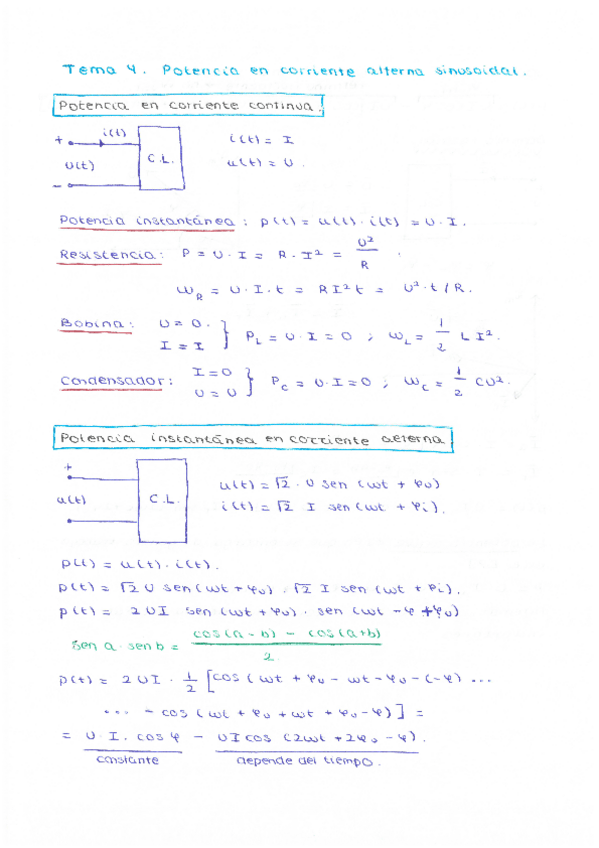 Tema 4. Potencia en corriente alterna sinusoidal.
Potencia en corriente continua.
+ i(t) i(t) = I
U(t) C.L. u(t) = U.
-
Potencia instantánea: p(t) = u(t)·i(t) = U·I.
Resistencia: P = U·I = R·I² = U²/R.
W_R = U·I·t = RI²t = U²·t/R.
Bobina: U = 0. } P_L = U·I = 0 ; W_L = 1/2 L I².
I = I
Condensador: I = 0 } P_C = U·I = 0 ; W_C = 1/2 CU².
U = U
Potencia instantánea en corriente alterna
+
u(t) C.L. u(t) = √2 · U sen (ωt + φu)
i(t) = √2 I sen (ωt + φi).
p(t) = u(t)·i(t).
p(t) = √2 U sen (ωt + φu) · √2 I sen (ωt + φi).
p(t) = 2UI sen (ωt + φu) · sen (ωt - φ + φu)
sen a · sen b = cos(a - b) - cos(a+b) / 2
p(t) = 2UI · 1/2 [cos (ωt + φu - ωt - φu - (-φ) ...
... - cos (ωt + φu + ωt + φu - φ)] =
= U·I. cos φ - UI cos (2ωt + 2φu - φ).
constante depende del tiempo.